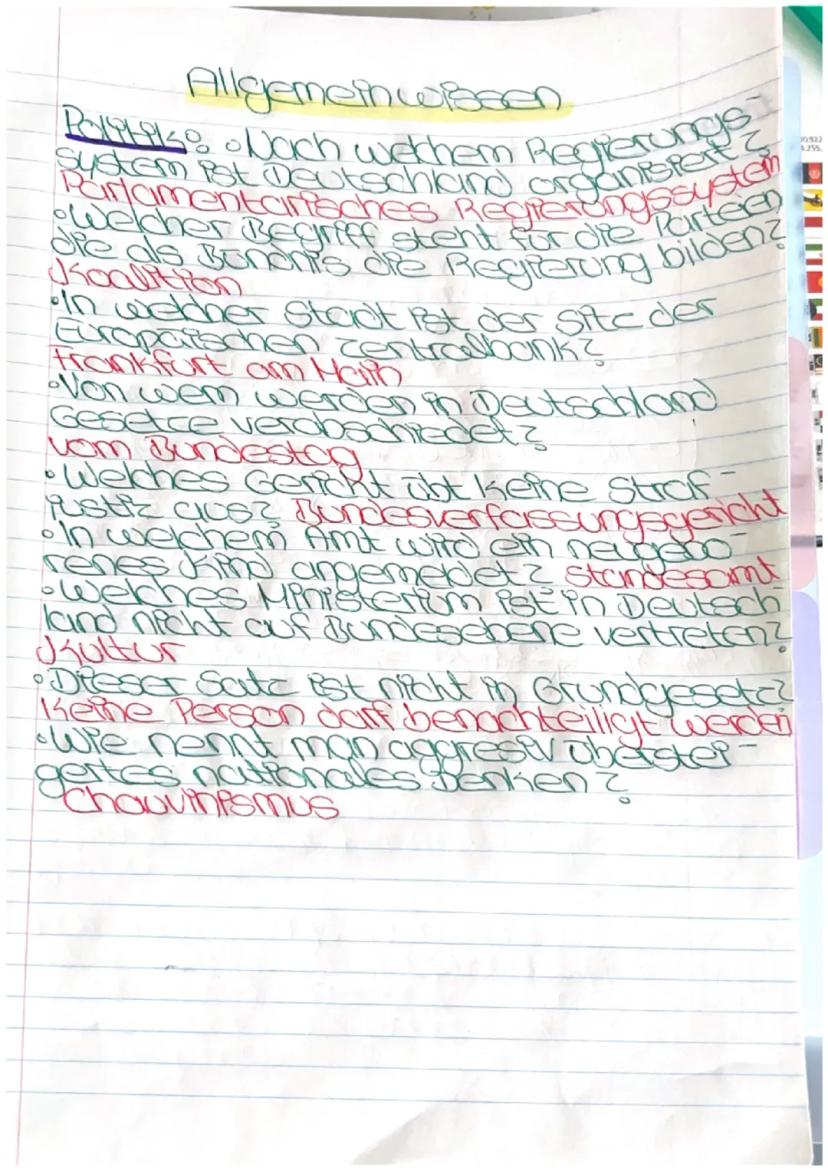 Allgemeinwissen
Politik: • Nach welchem Regierungs-
system ist Deutschland organisiert?
Parlamentarisches Regierungssystem
• Welcher Begriff steht für die Parteien
die als Bündnis die Regierung bilden?
Koalition
• In welcher Stadt ist der Sitz der
Europäischen Zentralbank?
Frankfurt am Main
• Von wem werden in Deutschland
Gesetze verabschiedet?
vom Bundestag
• Welches Gericht übt keine Straf-
justiz aus? Bundesverfassungsgericht
• In welchem Amt wird ein neugebo-
renes Kind angemeldet? Standesamt
• Welches Ministerium ist in Deutsch-
land nicht auf Bundesebene vertreten?
Kultur
• Dieser Satz ist nicht in Grundgesetz?
Keine Person darf benachteiligt werden
• Wie nennt man aggresiv überstei-
gertes nationales Denken?
Chauvinismus